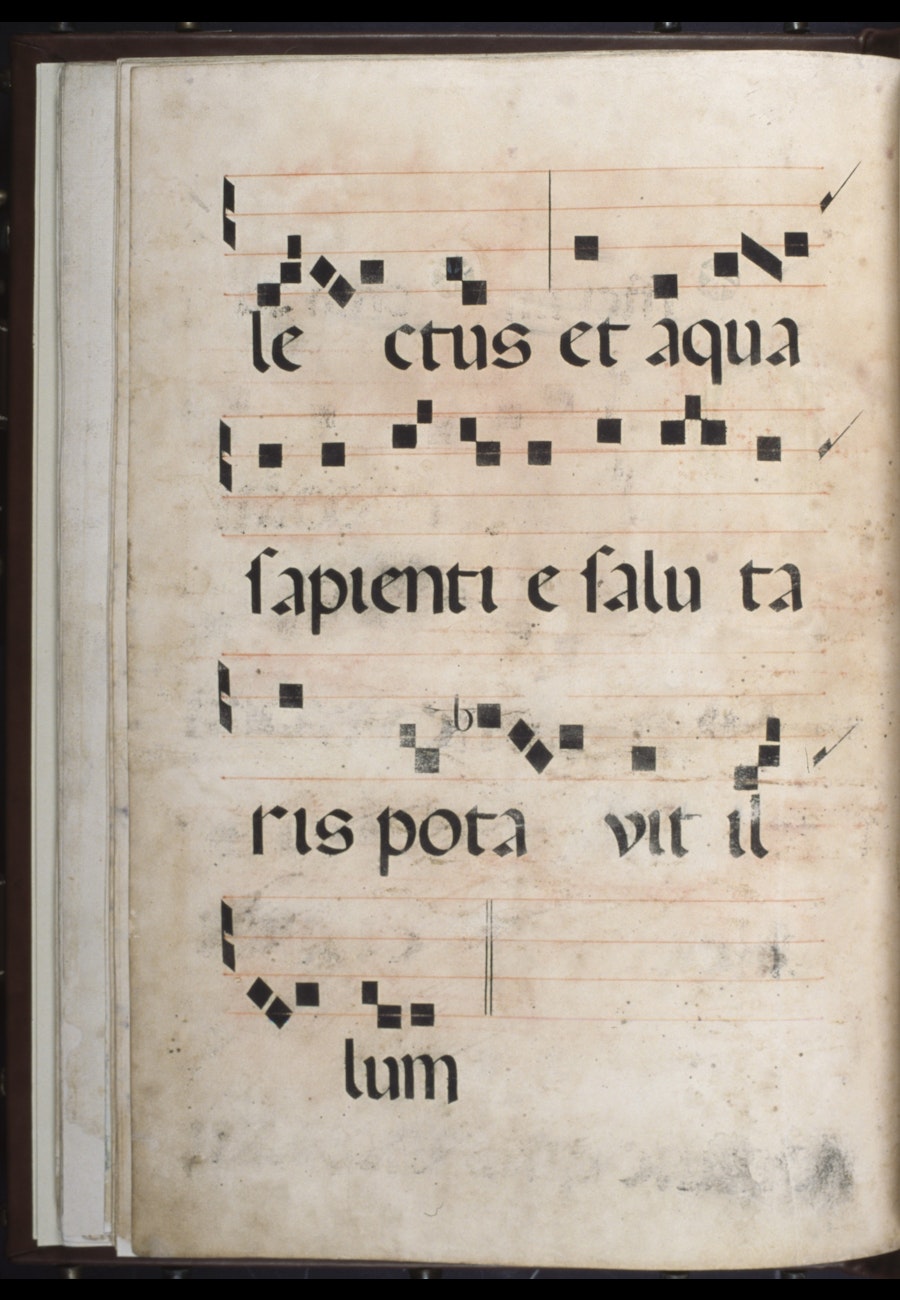 le ctus et aqua
ſapienti e ſalu ta
ris pota vit il
lum